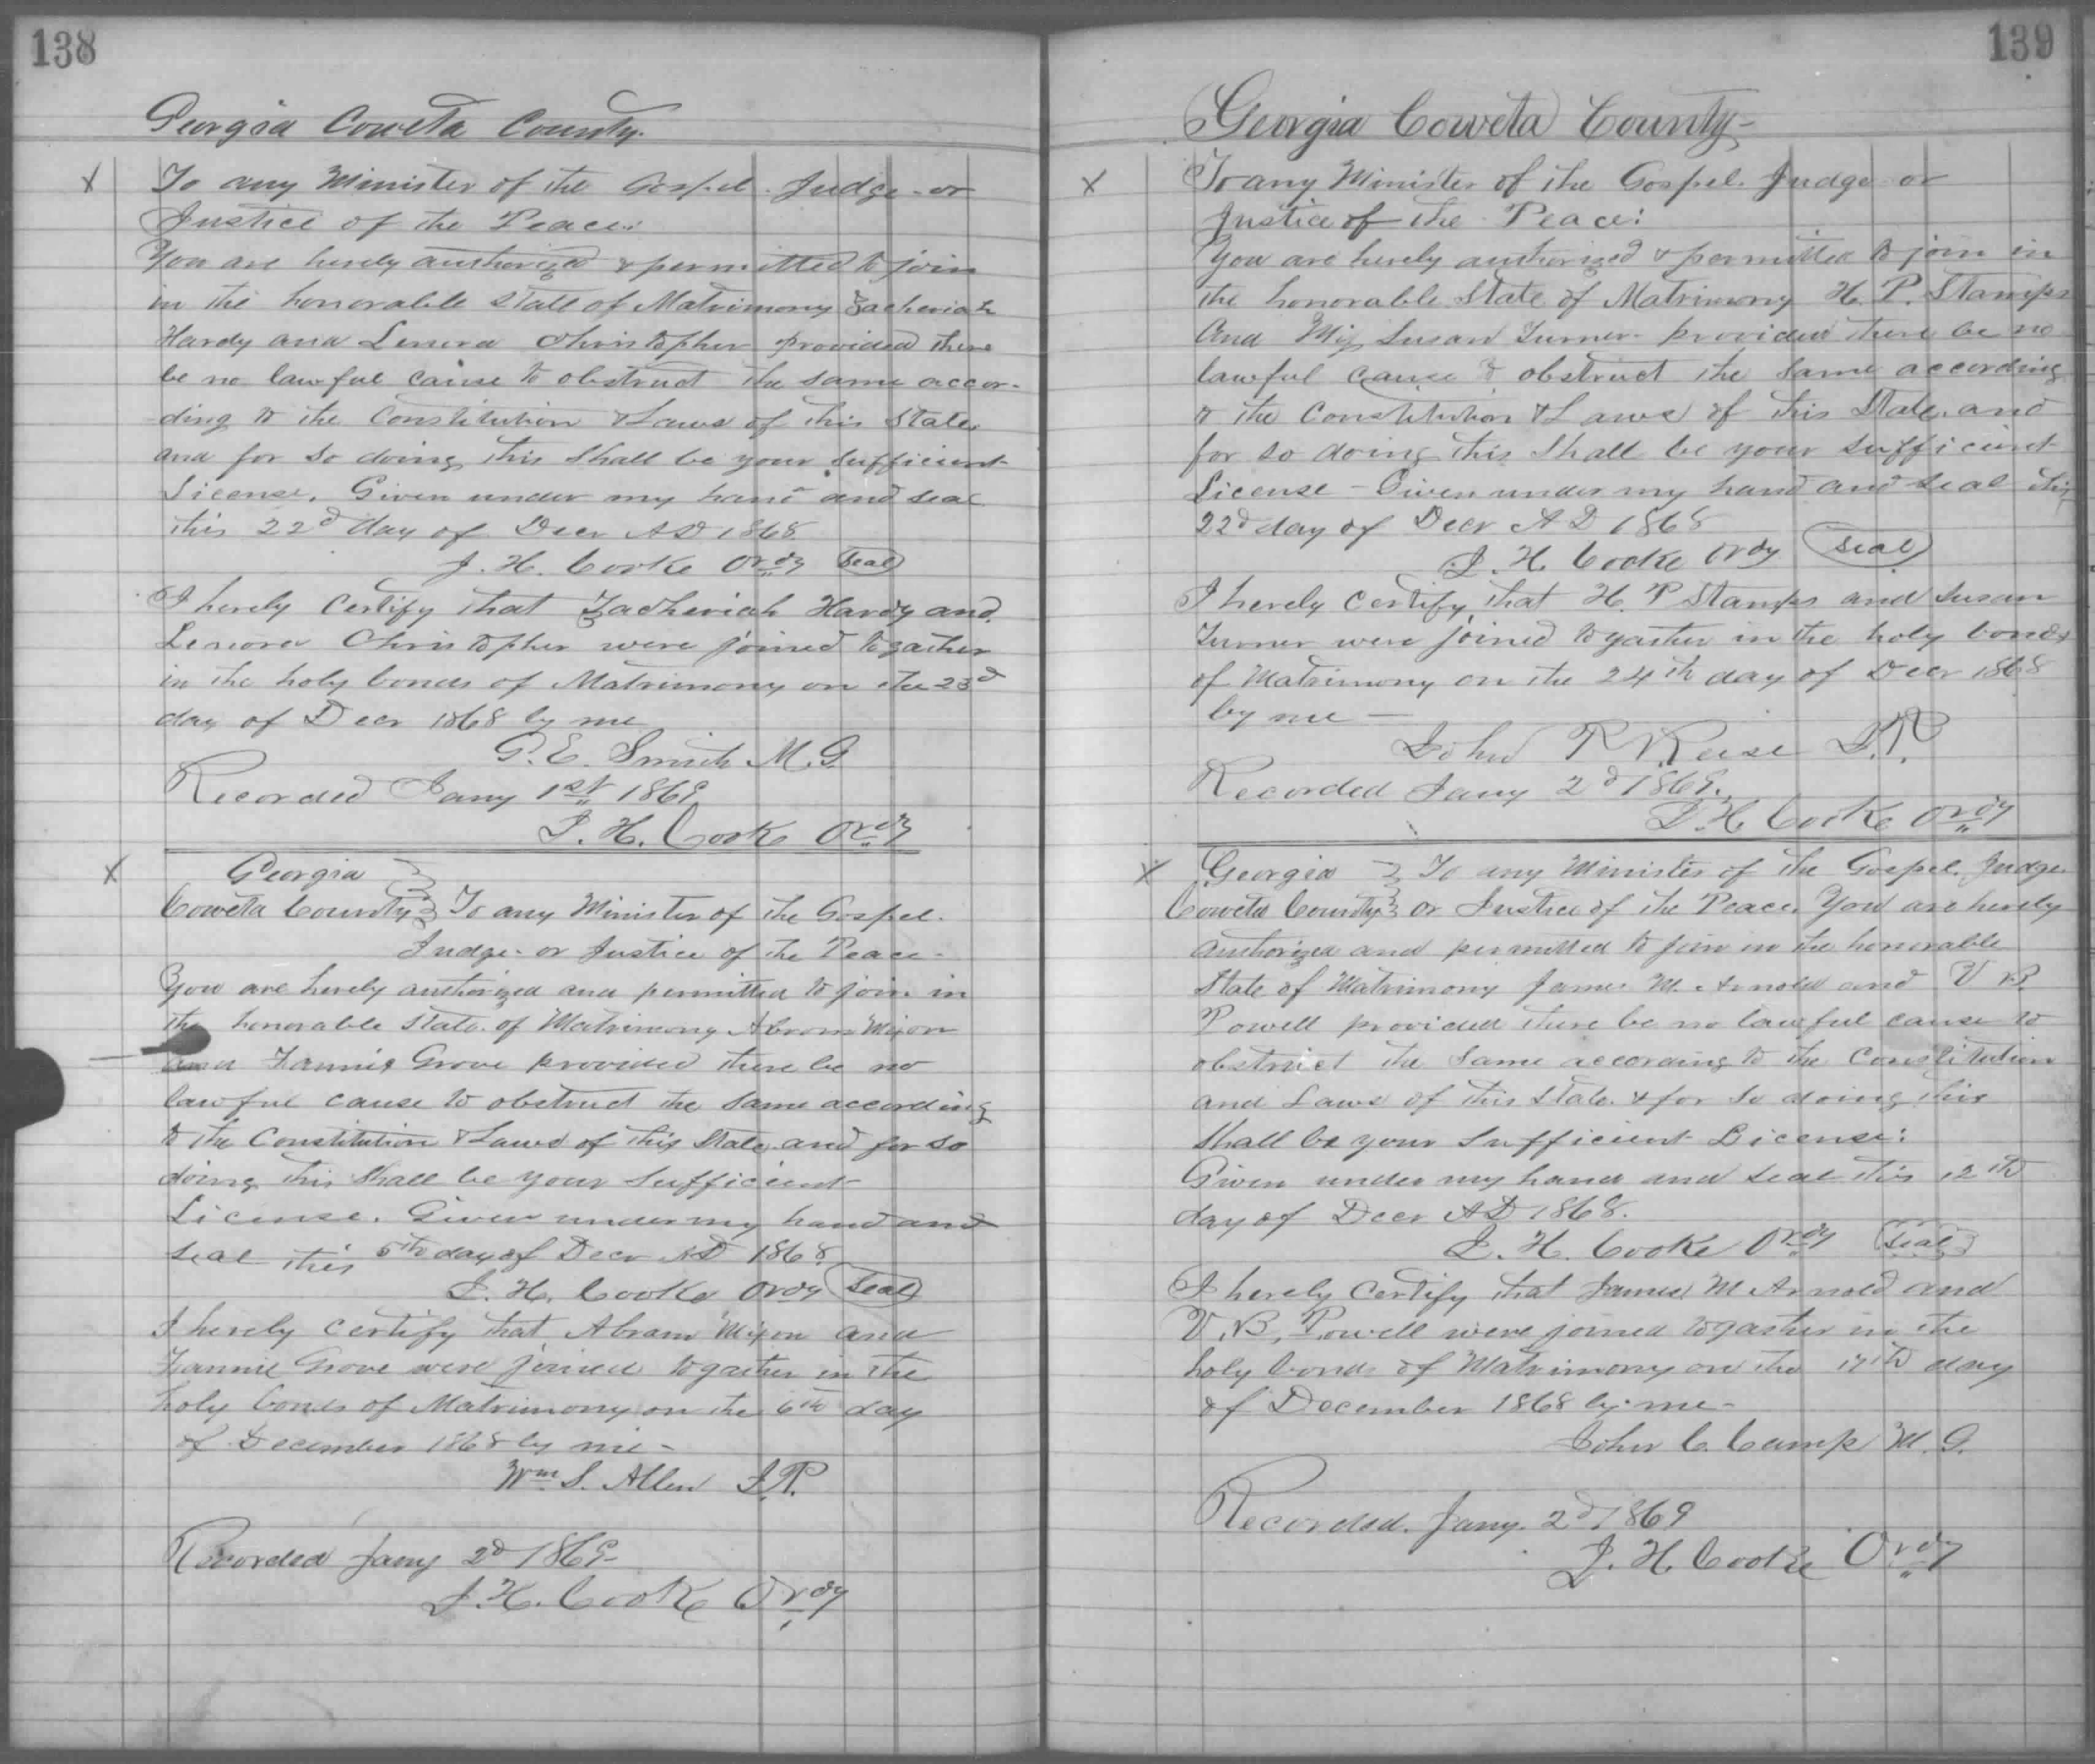 138
Georgia Coweta County.
X To any Minister of the Gospel. Judge or
Justice of the Peace:
You are hereby authorized & permitted to join
in the honorable State of Matrimony Zacheriah
Hardy and Lenora Christopher provided there
be no lawful cause to obstruct the same accor-
ding to the Constitution & Laws of this State
and for so doing this shall be your sufficient
License. Given under my hand and seal
this 22d day of Decr AD 1868
J. H. Cooke Ordy Seal
I hereby Certify that Zacheriah Hardy and
Lenora Christopher were joined togather
in the holy bonds of Matrimony on the 23d
day of Decr 1868 by me
G. E. Smith M. G.
Recorded Jany 1st 1869
J. H. Cooke Ordy
X Georgia
Coweta County To any Minister of the Gospel.
Judge or Justice of the Peace-
You are hereby authorized and permitted to join in
the honorable State of Matrimony Abram Mixon
and Fannie Grove provided there be no
lawful cause to obstruct the same according
to the Constitution & Laws of this State and for so
doing this shall be your sufficient
License. Given under my hand and
seal this 5th day of Decr AD 1868
J. H. Cooke Ordy Seal
I hereby Certify that Abram Mixon and
Fannie Grove were joined togather in the
holy bonds of Matrimony on the 6th day
of December 1868 by me-
Wm S. Allen J.P.
Recorded Jany 2d 1869
J. H. Cooke Ordy
139
Georgia Coweta County-
X To any Minister of the Gospel. Judge or
Justice of the Peace:
You are hereby authorized & permitted to join in
the honorable State of Matrimony H. P. Stamps
And Miss Susan Turner provided there be no
lawful cause to obstruct the same according
to the Constitution & Laws of this State and
for so doing this shall be your sufficient
License - Given under my hand and seal this
22d day of Decr AD 1868
J. H. Cooke Ordy Seal
I hereby Certify that H. P Stamps and Susan
Turner were joined togather in the holy bonds
of Matrimony on the 24th day of Decr 1868
by me -
John P Reese J.P.
Recorded Jany 2d 1869.
J. H Cooke Ordy
X Georgia To any Minister of the Gospel. Judge
Coweta County or Justice of the Peace. You are hereby
authorized and permitted to join in the honorable
State of Matrimony James M. Arnold and V B.
Powell provided there be no lawful cause to
obstruct the same according to the Constitution
and Laws of this State & for so doing this
shall be your sufficient License:
Given under my hand and seal this 12th
day of Decr AD 1868.
J. H. Cooke Ordy Seal
I hereby Certify that James M Arnold and
V. B. Powell were joined togather in the
holy bonds of Matrimony on the 17th day
of December 1868 by me-
John C. Camp M. G.
Recorded. Jany. 2d 1869
J. H. Cooke Ordy